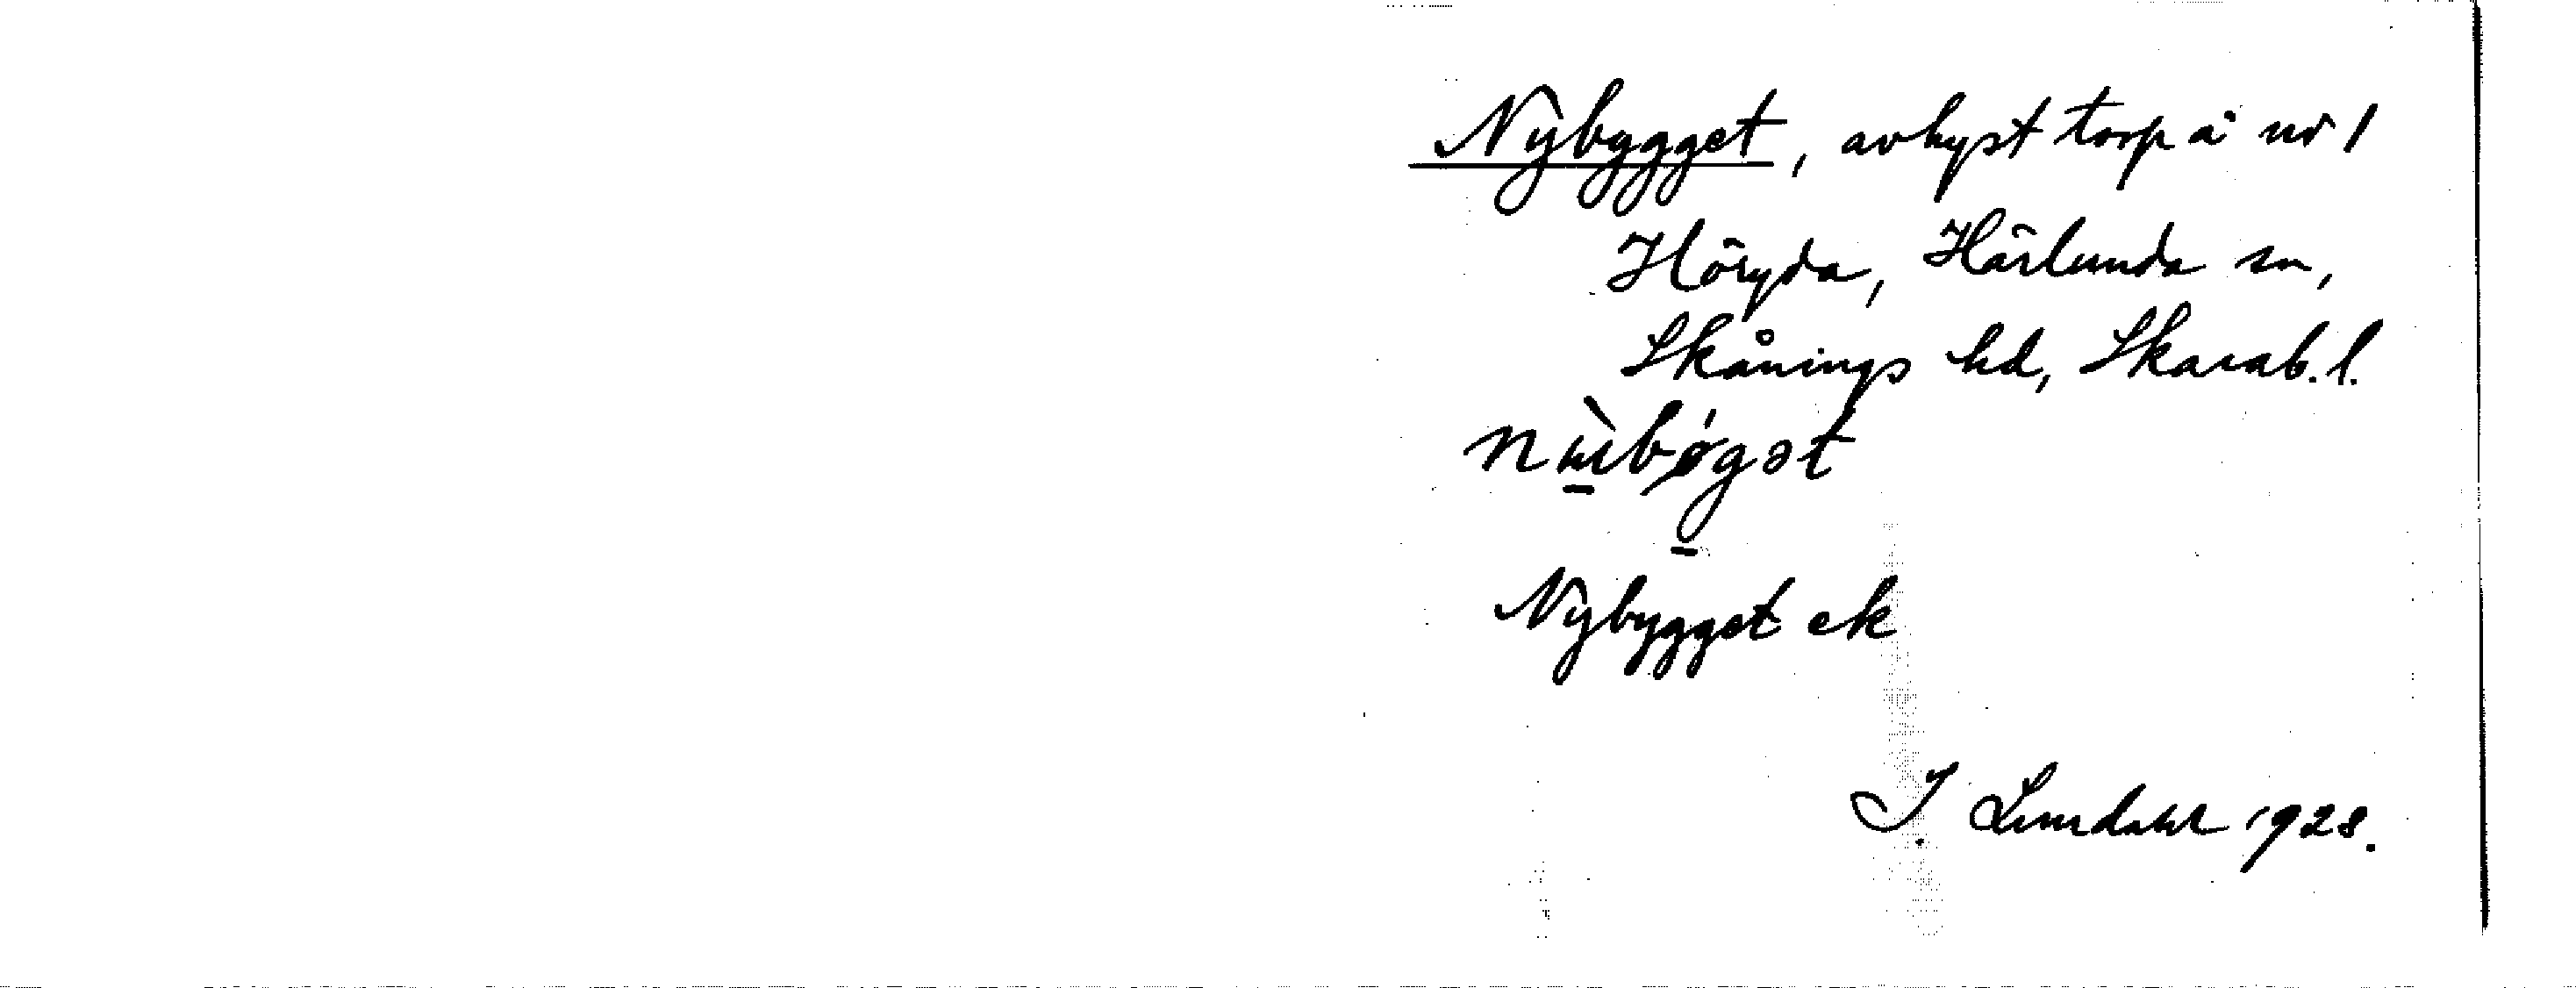 Nybygget, avhyst torp å nr 1
Höryda, Härlunda sn,
Skånings hd, Skarab. l.
nùbǿgət
Nybygget ek
J. Lindahl 1928.